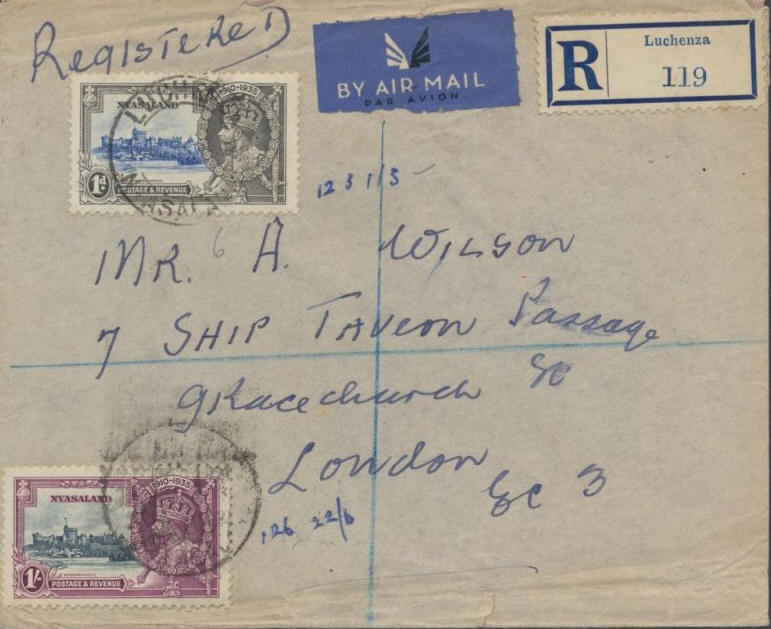 Registered
BY AIR MAIL
PAR AVION
R
Luchenza
119
1910-1935
NYASALAND
1d
POSTAGE & REVENUE
12 3 1/3
MR. A. WILSON
7 SHIP TAVERN Passage
Gracechurch St
London
EC 3
126 22/6
1910-1935
NYASALAND
WINDSOR CASTLE
1/-
POSTAGE & REVENUE